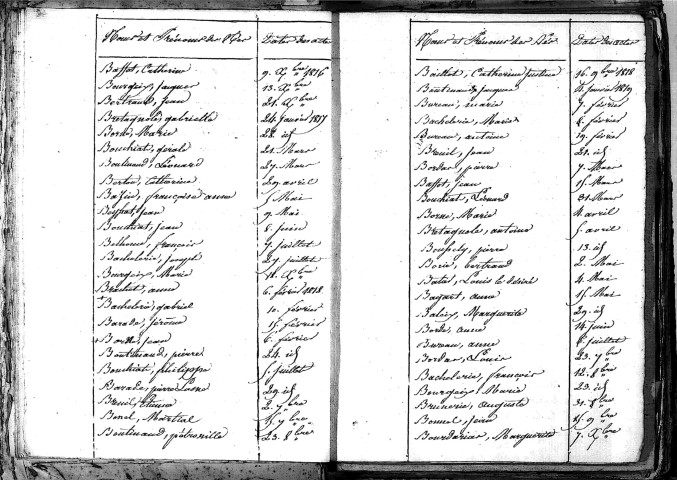 Noms et Prénoms des Nés Dates des actes
Baffet, Catherine 9. Xbre 1816
Bourgeix, Jacques 13. Xbre
Bertrand, Jean 21. Xbre
Bretagnole, gabrielle 24. Janvier 1817
Borde, Marie 28. id
Bouchiat, 21. Mars
Boulnaud, Léonard 27. Mars
Bertin, Catherine 29. avril
Bazin, françoise anne 5 Mai
Beyssat, Jean 9. Mai
Bouchiat, Jean 8. juin
Bethoux, françois 7 juillet
Bachelerie, Joseph 27 juillet
Bourgeix, Marie 18. Xbre
Brachet, anne 6. février 1818
Bachelerie, gabriel 10. février
Barade, Jérôme 15. février
Borde, Jean 6. février
Boutinaud, pierre 24. id
Bouchiat, philippe 5. juillet
Barade, pierre 29. id
Breuil, Etienne 2. 7bre
Bonel, Martial 5. 7bre
Boutinaud, pétronille 23. 8bre
Noms et Prénoms des Nés Dates des actes
Baillot, Catherine Justine 16. 9bre 1818
Boutinaud, Jacques 11. Janvier 1819
Bureau, Marie 7. février
Bachelerie, Marie 8. février
Bureau, antoine 19. février
Breuil, Jean 21. id
Bordas, pierre 7. Mars
Baffet, Jean 15. Mars
Bouchiat, Léonard 31. Mars
Borne, Marie 4. avril
Bretagnole, antoine 5. avril
pierre 13. id
Borie, bertrand 2. Mai
Louis 4. Mai
anne 15. Mai
Marguerite 29. id
Borde, anne 14. juin
Bureau, anne 8. juillet
Bordas, Louis 23. 7bre
Bachelerie, françois 12. 8bre
Bourgeix, Marie 23. id
Brunerie, auguste 31. 8bre
Bonnel, Jean 15. 9bre
Bourdarias, Marguerite 7. Xbre